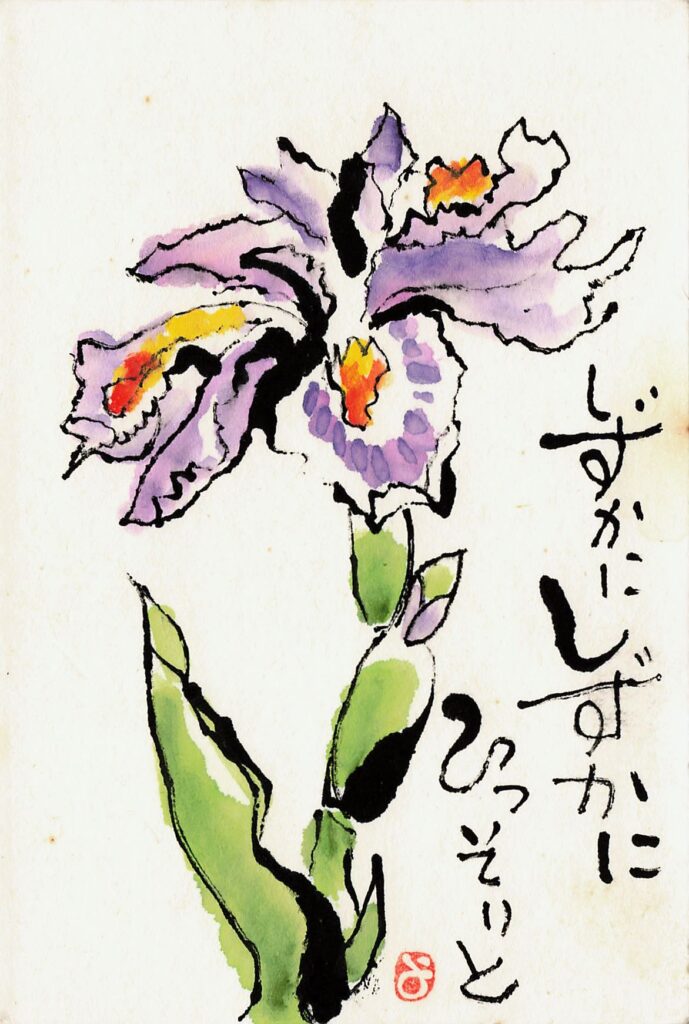 しずかにしずかに
ひっそりと